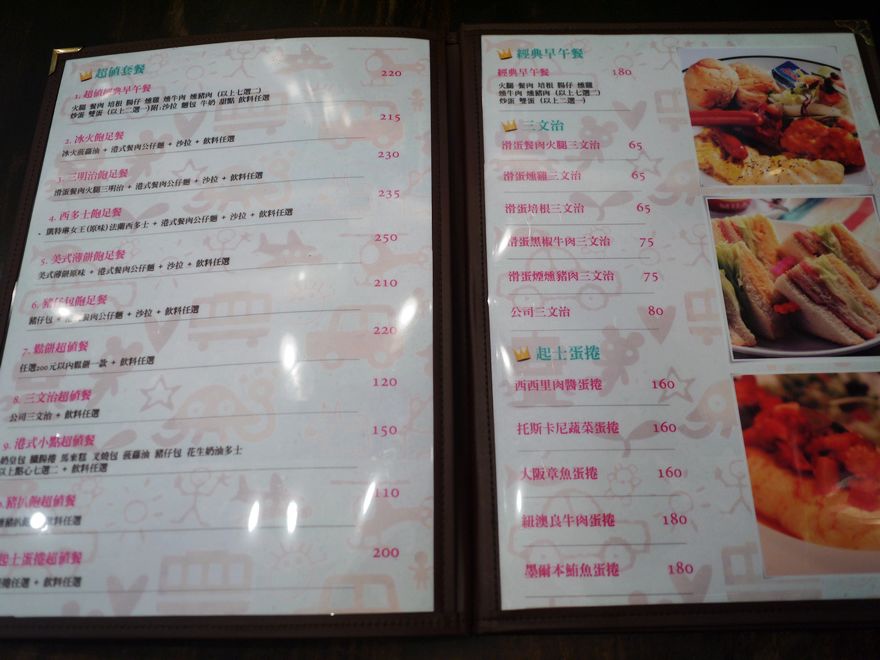 超值套餐
220
1. 超值經典早午餐
火腿 餐肉 培根 腸仔 燻雞 燻牛肉 燻豬肉 (以上七選二)
炒蛋 雙蛋 (以上二選一) 附:沙拉 麵包 牛奶 甜點 飲料任選
215
2. 冰火飽足餐
冰火菠蘿油 + 港式餐肉公仔麵 + 沙拉 + 飲料任選
230
3. 三明治飽足餐
滑蛋餐肉火腿三明治 + 港式餐肉公仔麵 + 沙拉 + 飲料任選
235
4. 西多士飽足餐
凱特琳女王(原味)法蘭西多士 + 港式餐肉公仔麵 + 沙拉 + 飲料任選
250
5. 美式薄餅飽足餐
美式薄餅原味 + 港式餐肉公仔麵 + 沙拉 + 飲料任選
210
6. 豬仔包飽足餐
豬仔包 + 餐肉公仔麵 + 沙拉 + 飲料任選
220
7. 鬆餅超值餐
任選200元以內鬆餅一款 + 飲料任選
120
8. 三文治超值餐
公司三文治 + 飲料任選
150
9. 港式小點超值餐
奶皇包 臘腸捲 馬來糕 叉燒包 菠蘿油 豬仔包 花生奶油多士
以上點心七選二 + 飲料任選
110
豬扒飽超值餐
飲料任選
200
起士蛋捲超值餐
捲任選 + 飲料任選
經典早午餐
經典早午餐 180
火腿 餐肉 培根 腸仔 燻雞
燻牛肉 燻豬肉 (以上七選二)
炒蛋 雙蛋 (以上二選一)
三文治
滑蛋餐肉火腿三文治 65
滑蛋燻雞三文治 65
滑蛋培根三文治 65
滑蛋黑椒牛肉三文治 75
滑蛋煙燻豬肉三文治 75
公司三文治 80
起士蛋捲
西西里肉醬蛋捲 160
托斯卡尼蔬菜蛋捲 160
大阪章魚蛋捲 160
紐澳良牛肉蛋捲 180
墨爾本鮪魚蛋捲 180